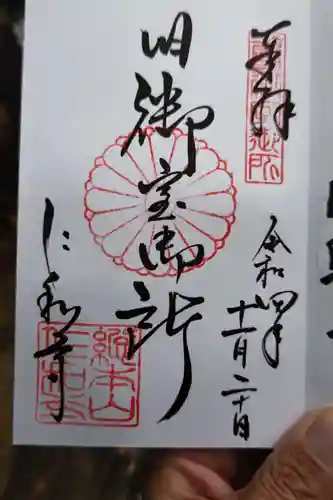 奉拝
令和四年
十一月二十日
旧御室御所
仁和寺
総本山
仁和寺